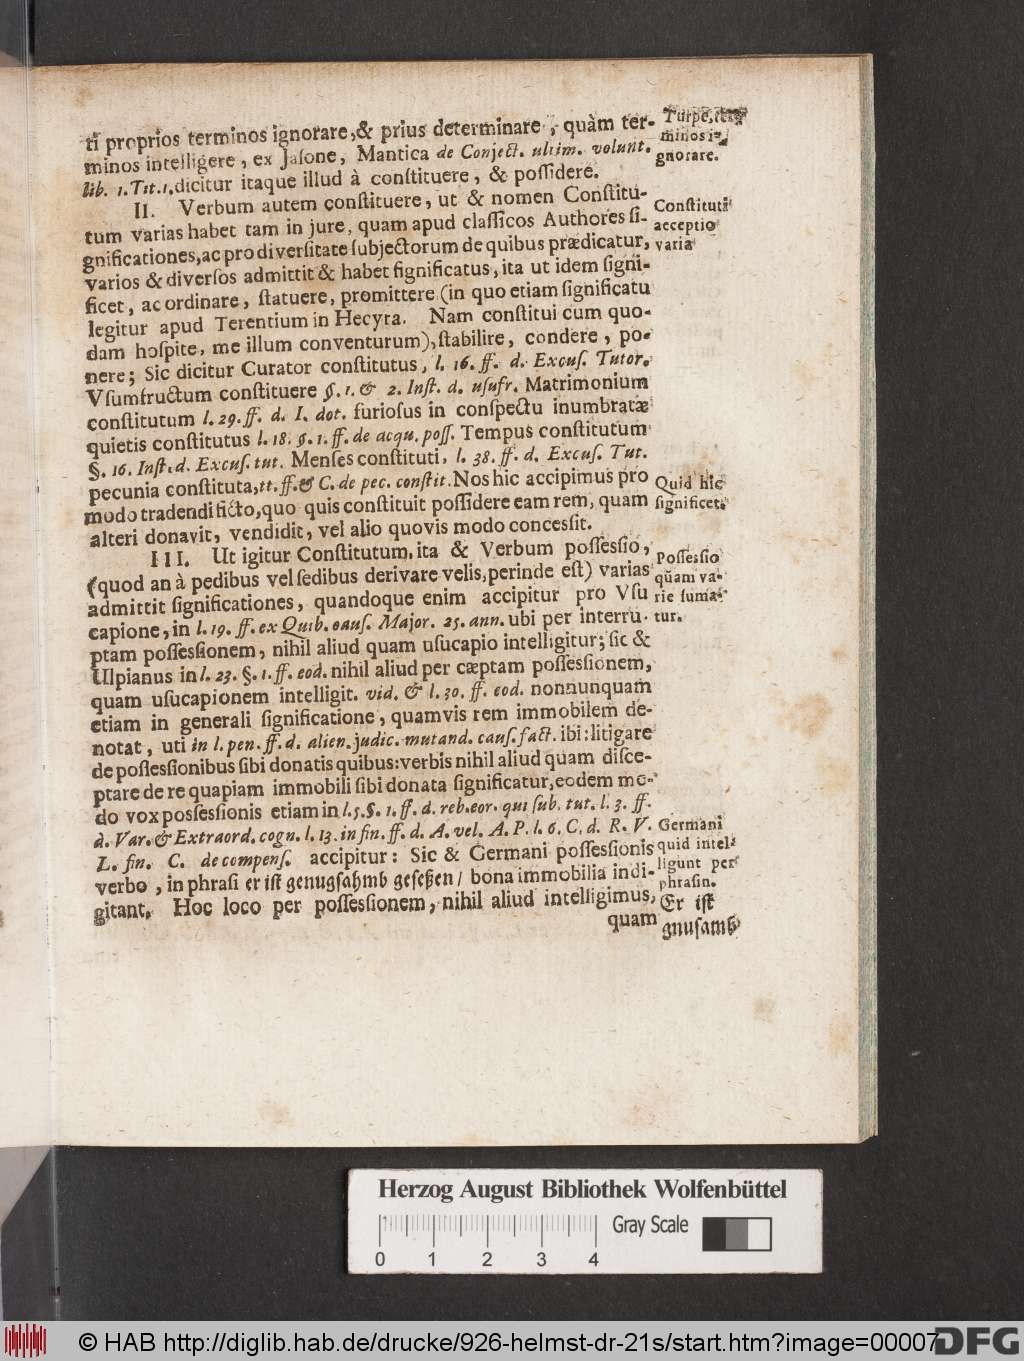 ti proprios terminos ignorare,& prius determinare, quàm ter-
minos intelligere, ex Jasone, Mantica de Conject. ultim. volunt.
lib. 1. Tit. 1. dicitur itaque illud à constituere, & possidere.
Turpe, ter-
minos i-
gnorare.
II. Verbum autem constituere, ut & nomen Constitu-
tum varias habet tam in jure, quam apud classicos Authores si-
gnificationes, ac pro diversitate subjectorum de quibus prædicatur,
varios & diversos admittit & habet significatus, ita ut idem signi-
ficet, ac ordinare, statuere, promittere (in quo etiam significatu
legitur apud Terentium in Hecyra. Nam constitui cum quo-
dam hospite, me illum conventurum), stabilire, condere, po-
nere; Sic dicitur Curator constitutus, l. 16. ff. d. Excus. Tutor.
Vsumfructum constituere §. 1. & 2. Inst. d. usufr. Matrimonium
constitutum l. 29. ff. d. I. dot. furiosus in conspectu inumbratæ
quietis constitutus l. 18. §. 1. ff. de acqu. poss. Tempus constitutum
§. 16. Inst. d. Excus. tut. Menses constituti, l. 38. ff. d. Excus. Tut.
pecunia constituta, tt. ff. & C. de pec. constit. Nos hic accipimus pro
modo tradendi ficto, quo quis constituit possidere eam rem, quam
alteri donavit, vendidit, vel alio quovis modo concessit.
Constituti
acceptio
varia
Quid hic
significet.
III. Ut igitur Constitutum, ita & Verbum possessio,
(quod an à pedibus vel sedibus derivare velis, perinde est) varias
admittit significationes, quandoque enim accipitur pro Vsu
capione, in l. 19. ff. ex Quib. caus. Major. 25. ann. ubi per interru-
ptam possessionem, nihil aliud quam usucapio intelligitur; sic &
Ulpianus in l. 23. §. 1. ff. eod. nihil aliud per cæptam possessionem,
quam usucapionem intelligit. vid. & l. 30. ff. eod. nonnunquam
etiam in generali significatione, quamvis rem immobilem de-
notat, uti in l. pen. ff. d. alien. judic. mutand. caus. fact. ibi: litigare
de possessionibus sibi donatis quibus: verbis nihil aliud quam disce-
ptare de re quapiam immobili sibi donata significatur, eodem mo-
do vox possessionis etiam in l. 5. §. 1. ff. d. reb. eor. qui sub. tut. l. 3. ff.
d. Var. & Extraord. cogn. l. 13. in fin. ff. d. A. vel. A. P. l. 6. C. d. R. V.
L. fin. C. de compens. accipitur: Sic & Germani possessionis
verbo, in phrasi er ist genugsahmb gesessen / bona immobilia indi-
gitant. Hoc loco per possessionem, nihil aliud intelligimus,
quam
Possessio
quam va-
rie suma-
tur.
Germani
quid intel-
ligunt per
phrasin.
Er ist
gnusamb
Herzog August Bibliothek Wolfenbüttel
0 1 2 3 4
Gray Scale
© HAB http://diglib.hab.de/drucke/926-helmst-dr-21s/start.htm?image=00007
DFG